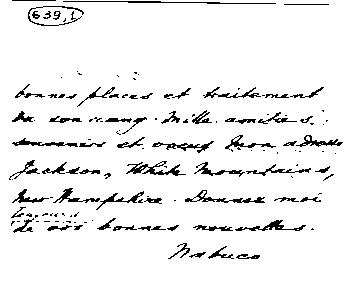 639,1
bonnes places et traitement
de son rang. Mille amitiés,
souvenirs et voeux. Mon adresse
Jackson, White Mountains,
New Hampshire. Donnez moi
toujours
de vos bonnes nouvelles.
Nabuco